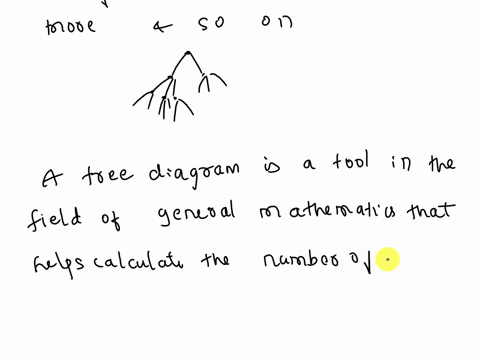 more & so on
A tree diagram is a tool in the
field of general mathematics that
helps calculate the number of